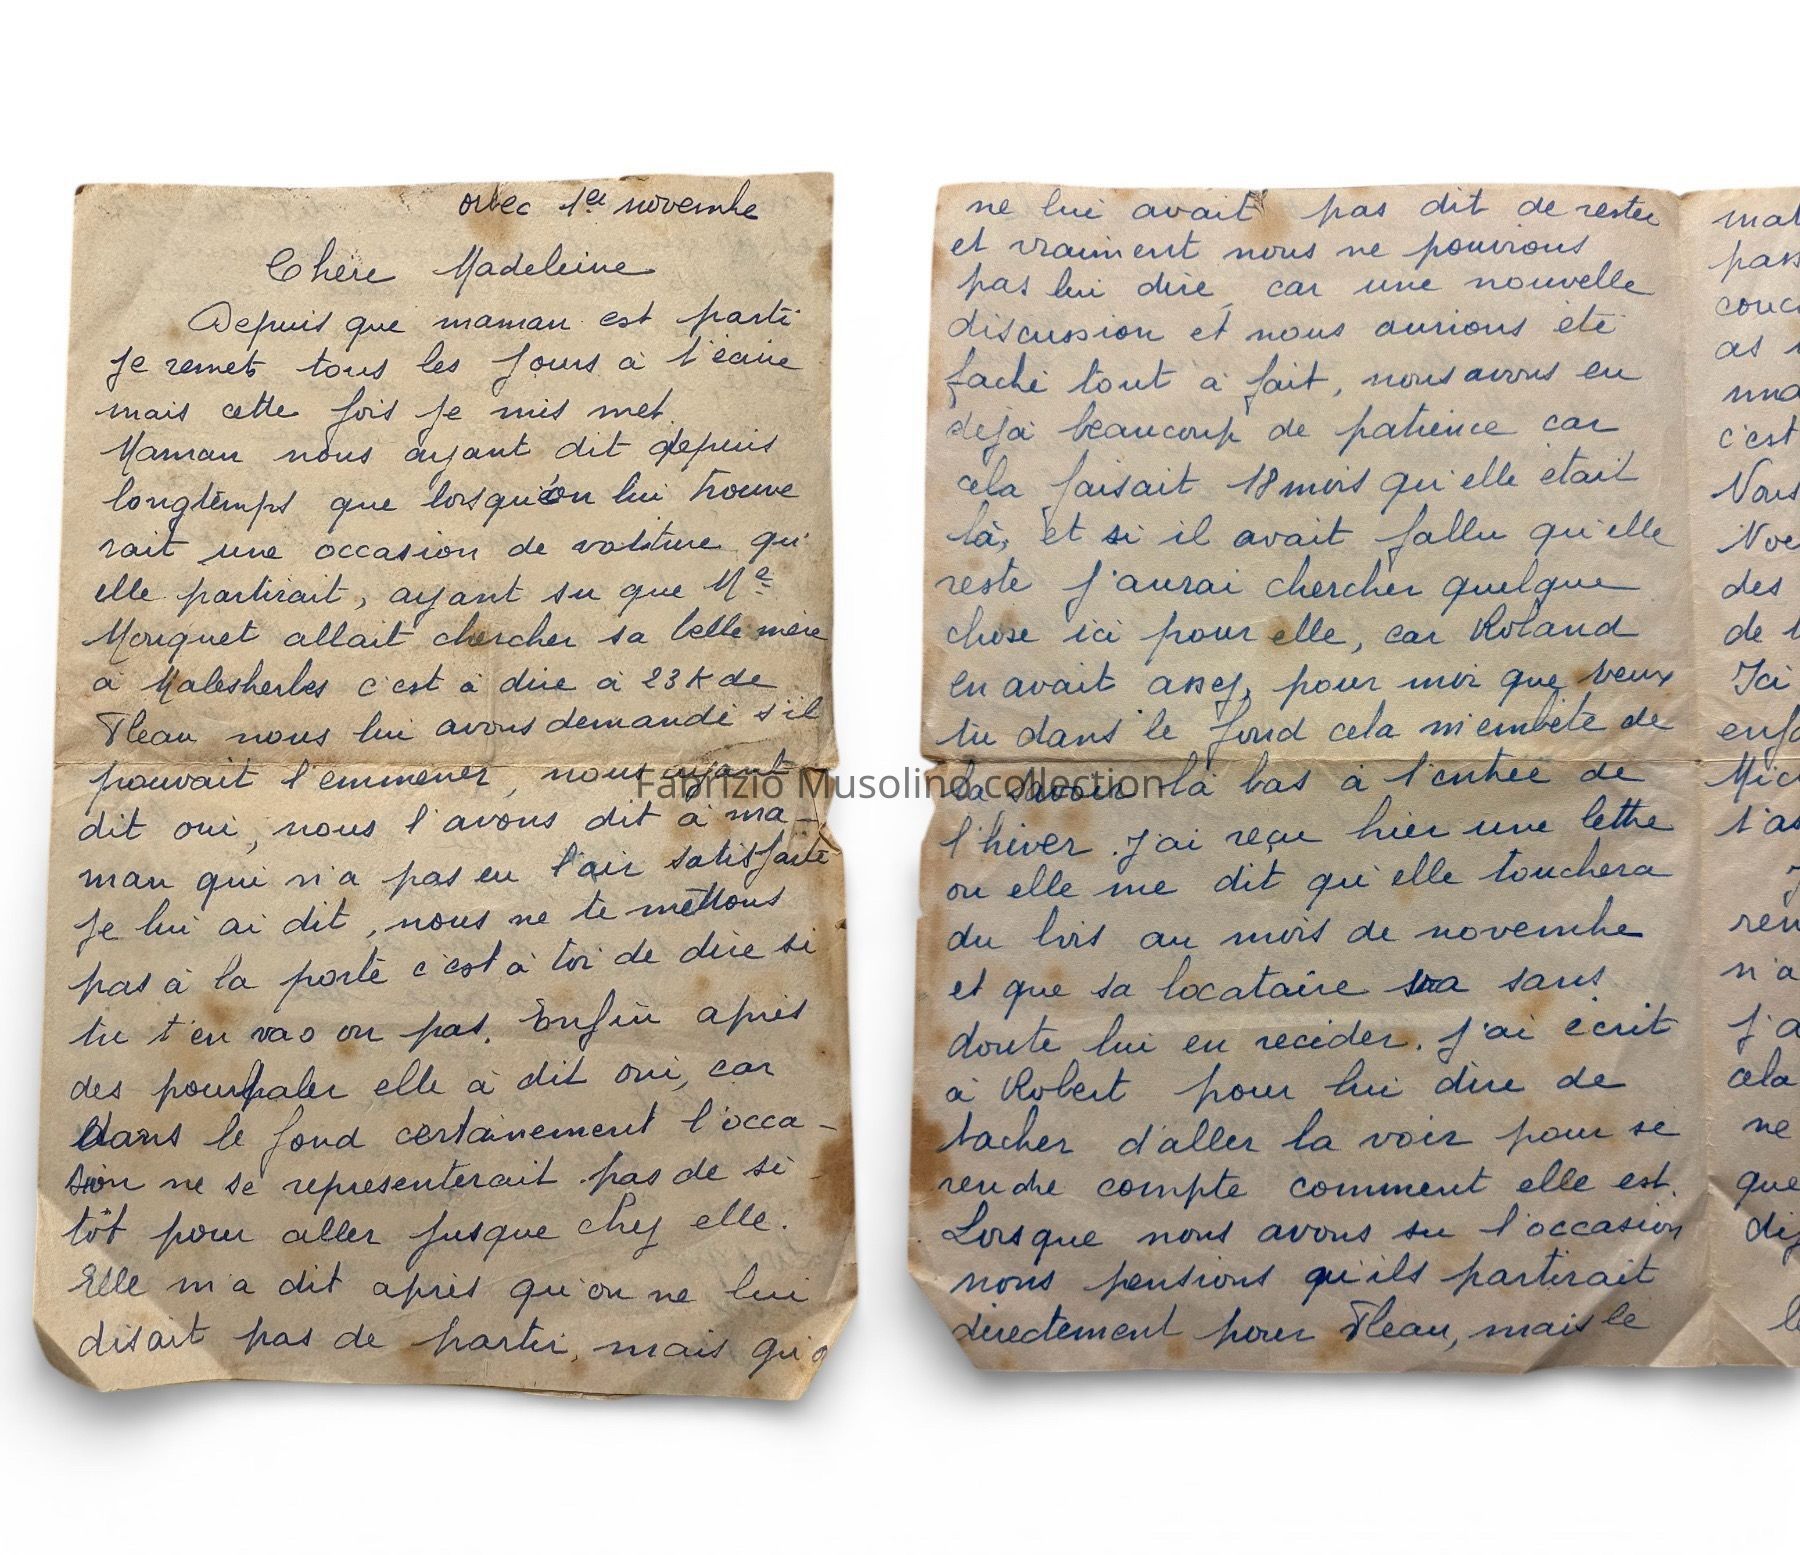 1er novembre
Chère Madeleine
Depuis que maman est parti
je remet tous les jours à t'écrire
mais cette fois je mis met
Maman nous ayant dit depuis
longtemps que lorsqu'on lui trouve
rait une occasion de voiture qu'
elle partirait, ayant su que Mr
Mouquet allait chercher sa belle mère
à Malesherbes c'est à dire à 23 K de
Fleau nous lui avons demandé s'il
pouvait l'emmener, nous ayant
dit oui, nous l'avons dit à ma-
man qui n'a pas eu l'air satisfaite
je lui ai dit, nous ne te mettons
pas à la porte c'est à toi de dire si
tu t'en vas ou pas. Enfin après
des pourpaler elle à dit oui, car
dans le fond certainement l'occa-
sion ne se representerait pas de si-
tôt pour aller jusque chez elle.
Elle m'a dit après qu'on ne lui
disait pas de partir, mais qu'o
ne lui avait pas dit de rester
et vraiment nous ne pouvions
pas lui dire, car une nouvelle
discussion et nous aurions été
faché tout à fait, nous avons eu
déjà beaucoup de patience car
cela faisait 18 mois qu'elle était
là, et si il avait fallu qu'elle
reste j'aurai chercher quelque
chose ici pour elle, car Roland
en avait assez, pour moi que veux
tu dans le fond cela m'embête de
la savoir là bas à l'entrée de
l'hiver. J'ai reçu hier une lettre
ou elle me dit qu'elle touchera
du bois au mois de novembre
et que sa locataire va sans
doute lui en recéder. J'ai écrit
à Robert pour lui dire de
tacher d'aller la voir pour se
rendre compte comment elle est.
Lorsque nous avons su l'occasion
nous pensions qu'ils partirait
directement pour Fleau, mais le
mat
pass
couc
as
c'est
Nous
Noe
des
de
Ici
enf
Mic
t'as
ren
n'a
j'a
cela
ne
que
Fabrizio Musolino collection